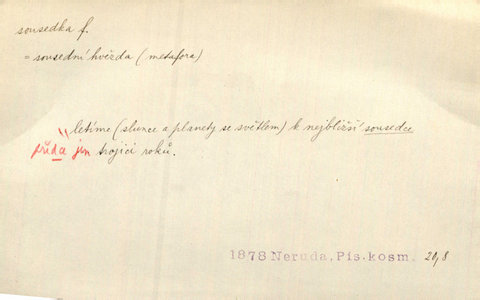 sousedka f.
= sousední hvězda (metafora)
letíme (slunce a planety se světlem) k nejbližší sousedce
příd a jen trojici roků.
1878 Neruda, Pís. kosm. 20,8